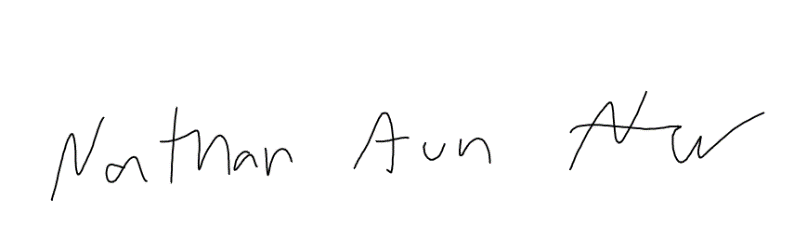 Nathan Aun